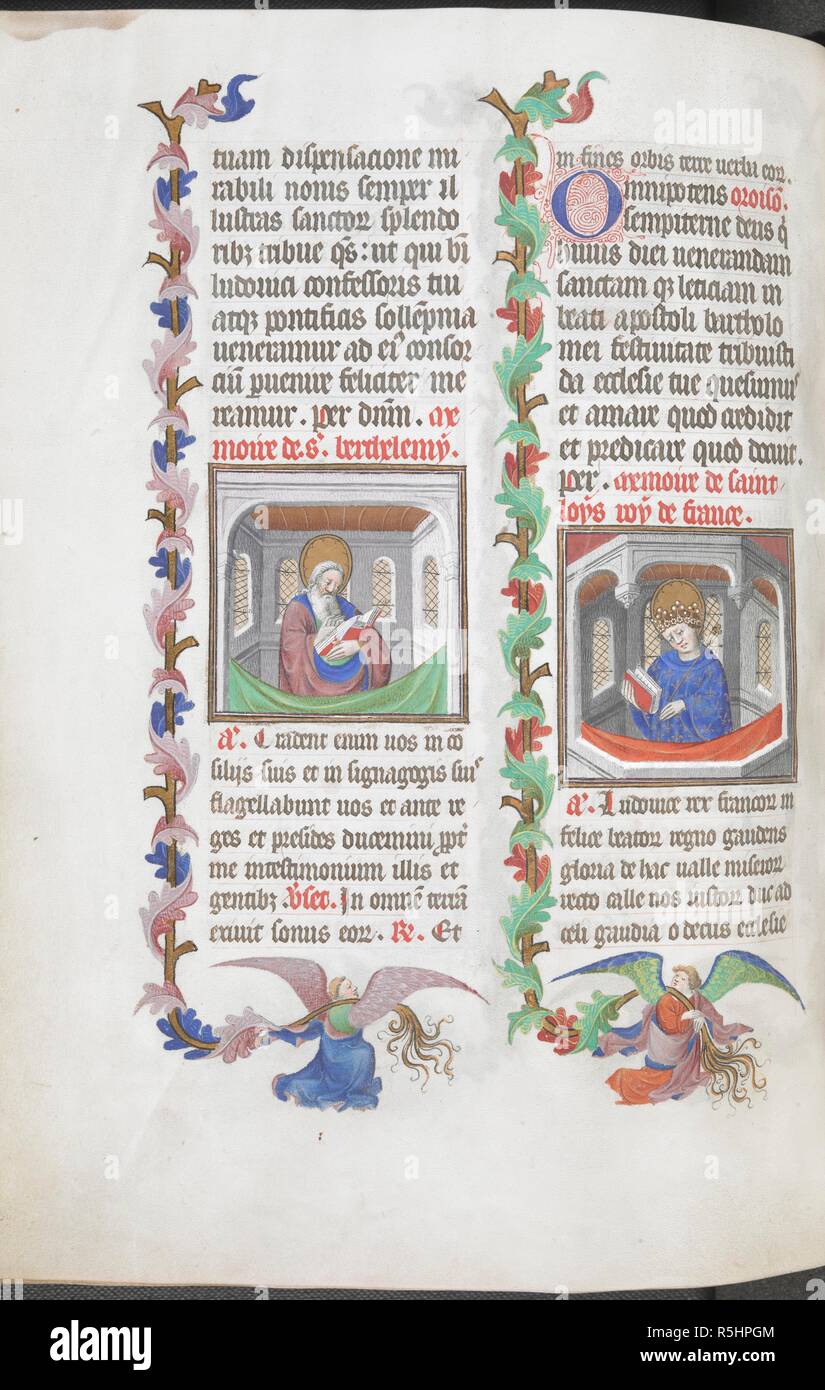 tuam dispensacione mi
rabili nouis semper il
lustras sanctoꝝ splendo
ribꝫ tribue qs̄: ut qui bī
ludouici confessoris tui
atqꝫ pontificis sollēpnia
ueneramur ad eiꝰ consor
ciū ꝑuenire feliciter me
reamur. per dnm̄. me
moire de.sͭ. berthelemy.
aͣ. Tradent enim uos in cō
silijs suis et in signagogis suiˢ
flagellabunt uos et ante re
ges et presides ducemini ꝓpͭ
me intestimonium illis et
gentibꝫ. v̄set. In omnē terrā
exiuit sonus eoꝝ. R̄e. Et
in fines orbis terre uerbi eoꝝ.
Omnipotens oroisō.
sempiterne deus q̄
huius diei uenerandam
sanctam qꝫ leticiam in
beati apostoli bartholo
mei festiuitate tribuisti
da ecclesie tue quesumuˢ
et amare quod credidit
et predicare quod docuit.
per. memoire de saint
loys roy de france.
aͣ. Ludouice rex francoꝝ in
felice beatoꝝ regno gaudens
gloria de hac ualle miseroꝝ
recto calle nos iustoꝝ duc ad
celi gaudia o decus ecclesie
alamy
alamy
Image ID: R5HPGM
www.alamy.com